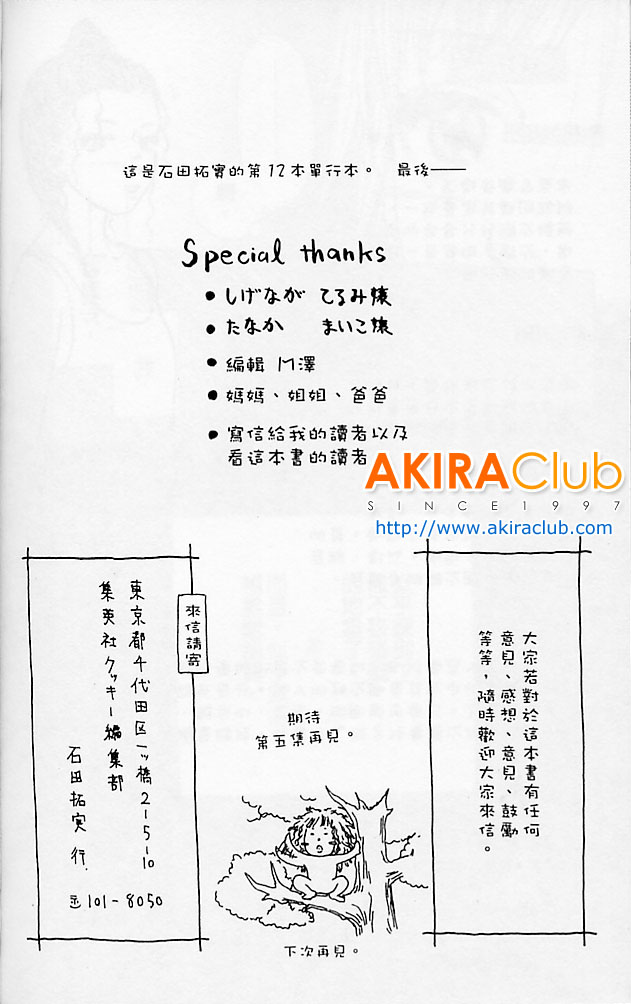 這是石田拓實的第12本單行本。 最後——
Special thanks
● しげなが てるみ嬢
● たなか まいこ嬢
● 編輯 M澤
● 媽媽、姐姐、爸爸
● 寫信給我的讀者以及
看這本書的讀者
AKIRA Club
SINCE1997
http://www.akiraclub.com
大家若對於這本書有任何
意見、感想、意見、鼓勵
等等，隨時歡迎大家來信。
期待
第五集再見。
來信請寄
東京都千代田区一ッ橋2-5-10
集英社クッキー編集部
石田拓実 行
〒101-8050
下次再見。